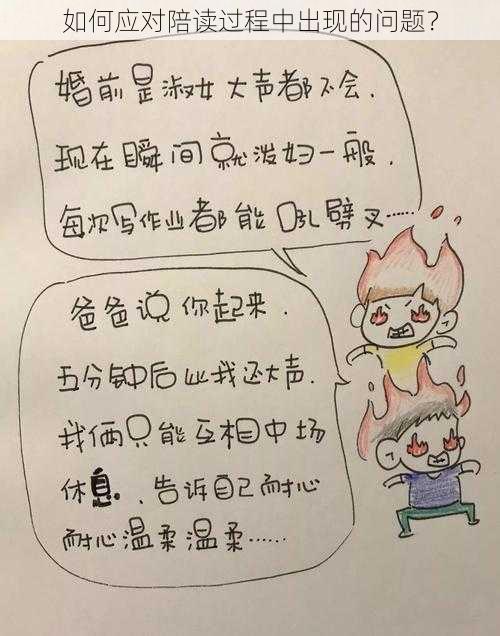 如何应对陪读过程中出现的问题？
婚前是淑女大声都不会．
现在瞬间就泼妇一般．
每次写作业都能吼劈叉……
爸爸说你起来．
五分钟后比我还大声．
我俩只能互相中场
休息．告诉自己耐心
耐心温柔温柔……